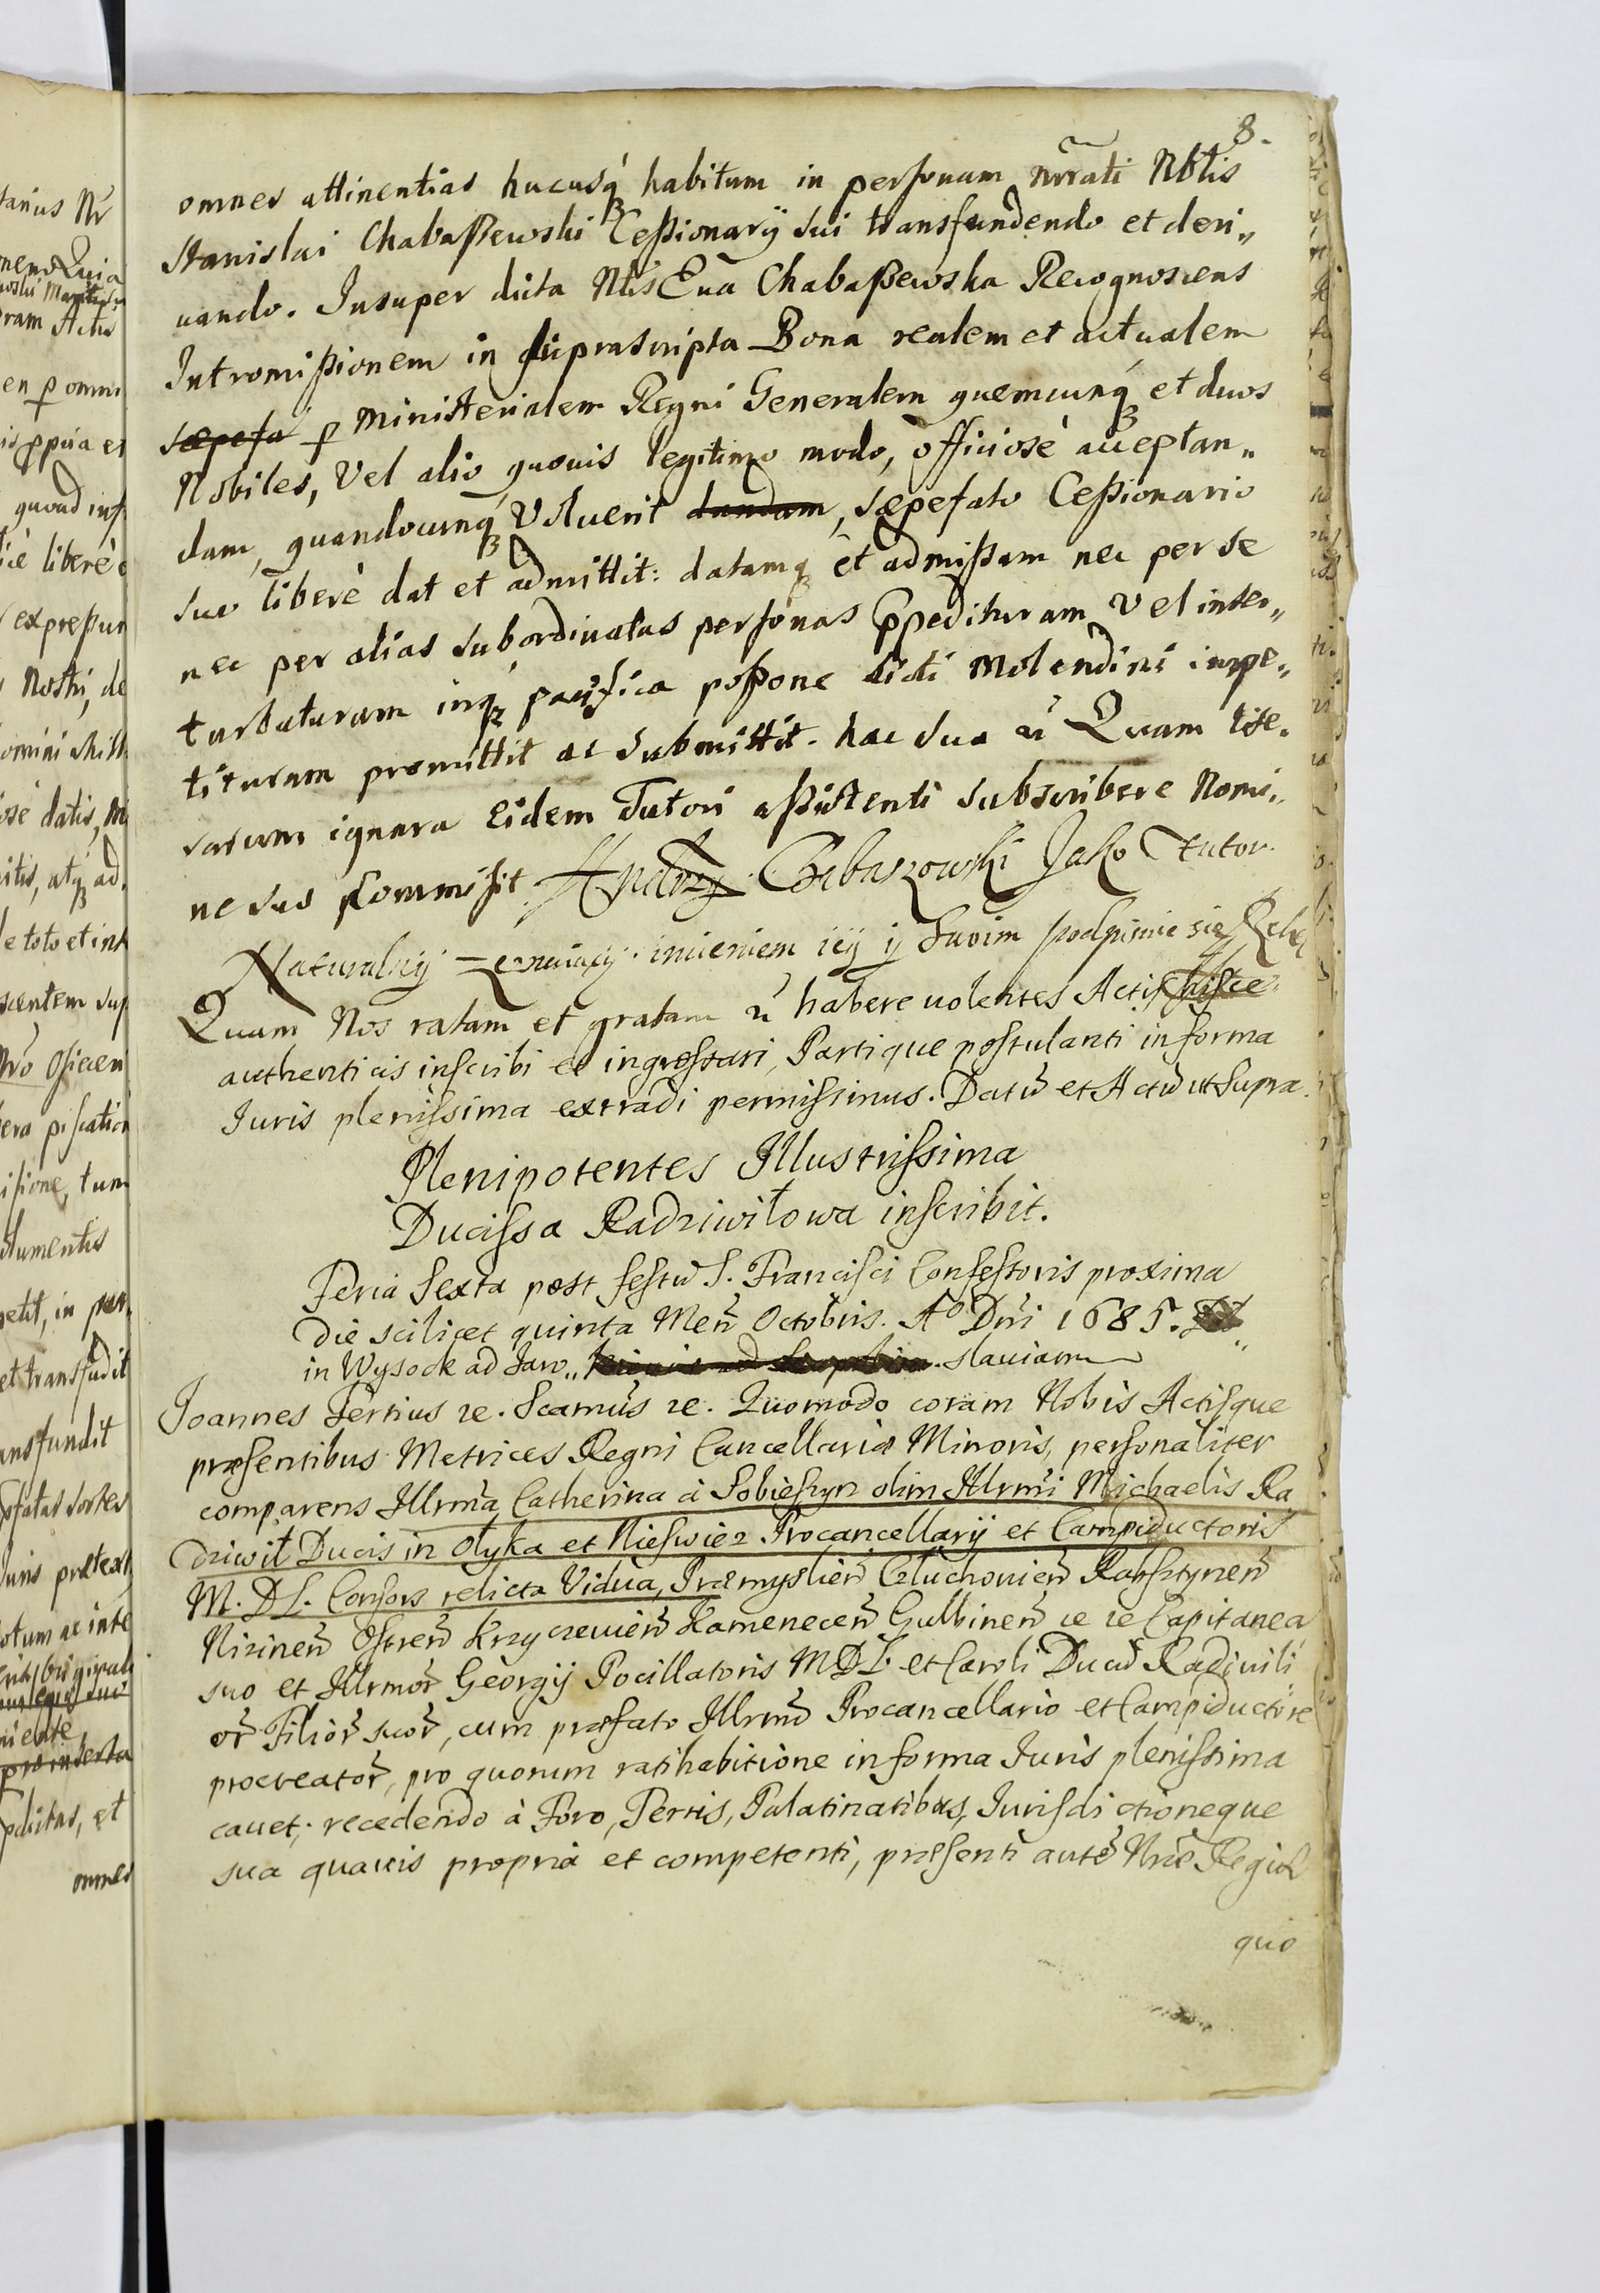 8.
omnes attinentias hucusq́ habitum in personam nrrati Nbtis
Stanislai Chabaßewski Ceßionarÿ sui transfundendo et deri„
uando. Insuper dicta Nbtis Eua Chabaßewska Recognoscens
Intromißionem in supra scripta Bona realem et actualem
sæpefa ꝑ Ministerialem Regni Generalem quemcunq́ et duos
Nobiles, Vel alio quouis legitimo modo, officiosè acceptan„
dam, quandocunq́ Voluerit dandam, sæpefato Ceßionario
suo liberè dat et admittit: datamq́ et admißam nec per se
nec per alias subordinatas personas Impedituram Vel inter„
turbaturam inq́ pacifica poßone dicti Molendini impe„
tituram promittit ac submittit. hac sua ũ Quam lite„
rarum ignara eidem Tutori aßistenti subscribere Nomi„
ne suo Commisit. Andrzy Chabaszowski Jako Tutor
Naturalny Zeznaiący imieniem iey y Swoim podpisuie się Ręką
Quam Nos ratam et gratam ũ habere uolentes Actis hisce
authenticis inscribi et ingrossari, Partique postulanti in forma
Iuris plenissima extradi permissimus. Datũ et Actũ ut Supra.
Plenipotentes Illustrissima
Ducissa Radziwiłowa inscribit.
Feria Sexta post festũ S. Francisci Confessoris proxima
die scilicet quinta Men̄ Octobris. Aº Dñi 1685.
in Wysock ad Jaro„ slauiam
Joannes Tertius re. Scamus re. Quomodo coram Nobis Actisque
præsentibus Metrices Regni Cancellariæ Minoris, personaliter
comparens Illrma Catherina à Sobieszyn olim Illrmi Michaelis Ra
dziwił Ducis in Olyka et Nieswiez Procancellarij et Campiductoris
M. D L. Consors relicta Vidua, Præmyslien̄ Człuchouien̄ Rabsztynen̄
Nizinen̄ Ostren̄ Krzyczeuien̄ Kamenecen̄ Gulbinen̄ re re Capitanea
suo et Illrmor̄ Georgij Pocillatoris M D L et Caroli Ducũ Radiuili
or̄ Filior̄ suor̄, cum præfato Illrmo Procancellario et Campiductore
procreator̄, pro quorum ratihabitione in forma Iuris plenissima
cauet; recedendo à Foro, Terris, Palatinatibus, Iurisdictioneque
sua quauis propria et competenti, præsenti autẽ Nrae Regiæ
quo